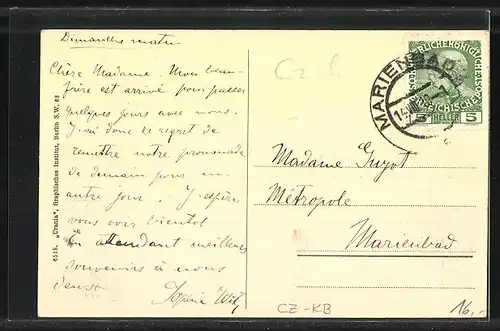 Dimanche matin
Chère Madame. Mon beau-
frère est arrivé pour passer
quelques jours avec nous.
J'ai donc le regret de
remettre notre promenade
de demain pour un
autre jour. J'espère
vous voir bientot
En attendant meilleurs
souvenirs à nous
deux
Sophie
6515. „Urania“, Graphisches Institut, Berlin S.W. 68
Cz
MARIENBAD
5 HELLER 5
Madame Guyot
Métropole
Marienbad
CZ-KB
16,-